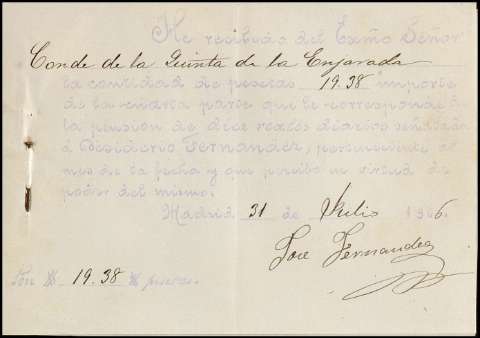 He recibido del Excmo Señor
Conde de la Quinta de la Enjarada
la cantidad de pesetas 19.38 importe
de la cuarta parte que le corresponde de
la pensión de diez reales diarios señalada
á Desiderio Fernandez, perteneciente al
mes de la fecha y que percibo en virtud de
poder del mismo.
Madrid 31 de Julio 1906.
Jose Fernandez
Son # 19.38 # pesetas.